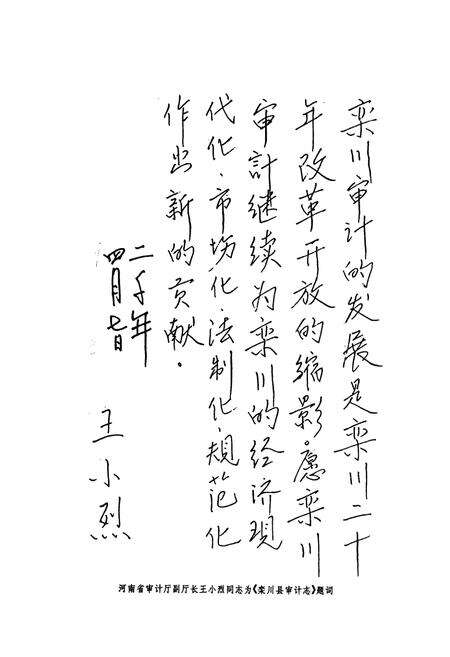 栾川审计的发展是栾川二十
年改革开放的缩影。愿栾川
审計继续为栾川的经济现
代化、市场化、法制化、规范化
作出新的贡献。
二千年
四月七日
王小烈
河南省审计厅副厅长王小烈同志为《栾川县审计志》题词